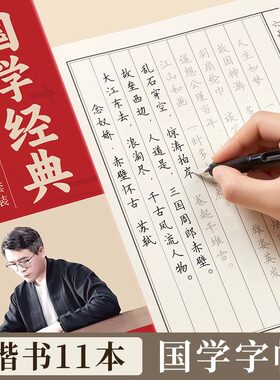 国学经典
套装
念奴娇·赤壁怀古 苏轼
大江东去，浪淘尽，千古风流人物。
故垒西边，人道是，三国周郎赤壁。
乱石穿空，惊涛拍岸，
卷起千堆雪
江山如画
一时多
羽扇纶巾
故国神游
楷书11本
国学字